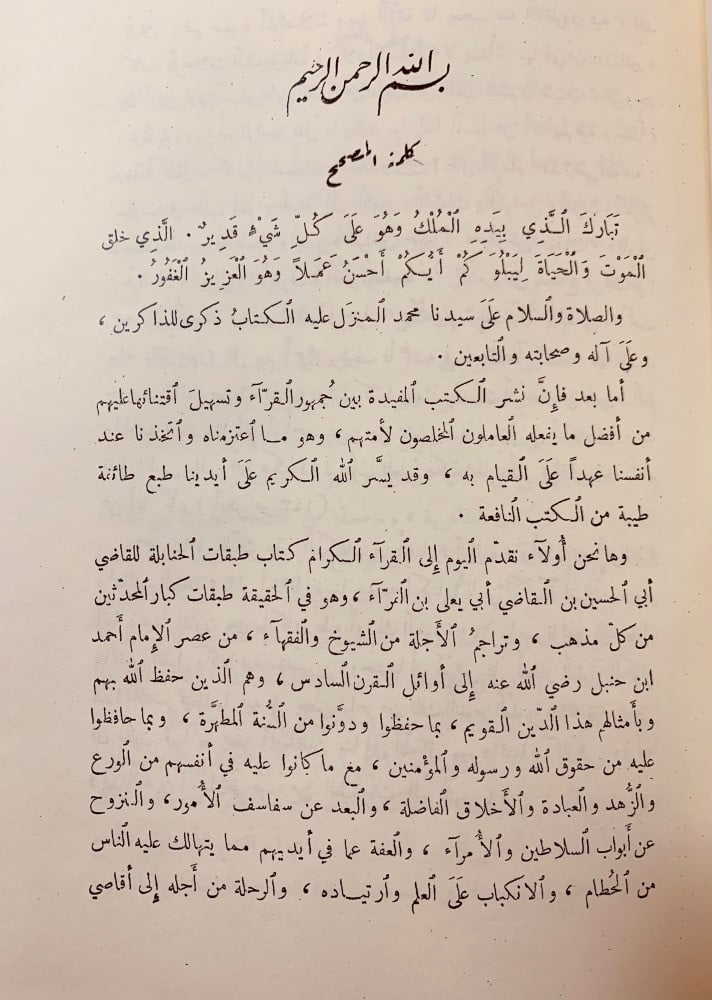 بسم الله الرحمن الرحيم
كلمة المصحح
تَبَارَكَ الَّذِي بِيَدِهِ الْمُلْكُ وَهُوَ عَلَىَ كُلِّ شَيْءٍ قَدِيرٌ . الَّذِي خلق
الْمَوْتَ وَالْحَيَاةَ لِيَبْلُوَكُمْ أَيُّكُمْ أَحْسَنُ عَمَلاً وَهُوَ الْعَزِيزُ الْغَفُورُ .
والصلاة والسلام عَلَىَ سيدنا محمد المنزَل عليه الكتابُ ذكرى للذاكرين ،
وعَلَىَ آله وصحابته والتابعين .
أما بعد فإِنَّ نشر الكتب المفيدة بين جُمهور القرّآء وتسهيلَ اقتنائها عليهم
من أفضل ما يفعله العاملون المخلصون لأمتهم ، وهو ما اعتزمناه واتخذنا عند
أنفسنا عهداً عَلَىَ القيام به ، وقد يسَّر الله الكريم عَلَىَ أيدينا طبع طائفة
طيبة من الكتب النافعة .
وها نحن أُولآء نقدّم اليوم إِلى القرآء الكرام كتاب طبقات الحنابلة للقاضي
أبي الحسين بن القاضي أبي يعلى بن الفرّآء ، وهو في الحقيقة طبقات كبار المحدّثين
من كلّ مذهب ، وتراجمُ الأَجلة من الشيوخ والفقهآء ، من عصر الإِمام أَحمد
ابن حنبل رضي الله عنه إِلى أوائل القرن السادس ، وهم الذين حفظ الله بهم
وبأَمثالهم هذا الدّين القويم ، بما حفظوا ودوَّنوا من السُّنة المطهَّرة ، وبما حافظوا
عليه من حقوق الله ورسوله والمؤمنين ، مع ما كانوا عليه في أنفسهم من الورع
والزُّهد والعبادة والأَخلاق الفاضلة ، والبعد عن سفاسف الأُمور ، والنزوح
عن أبواب السلاطين والأُمرآء ، والعفة عما في أيديهم مما يتهالك عليه الناس
من الحُطام ، والانكباب عَلَىَ العلم وارتياده ، والرحلة من أَجله إِلى أقاصي